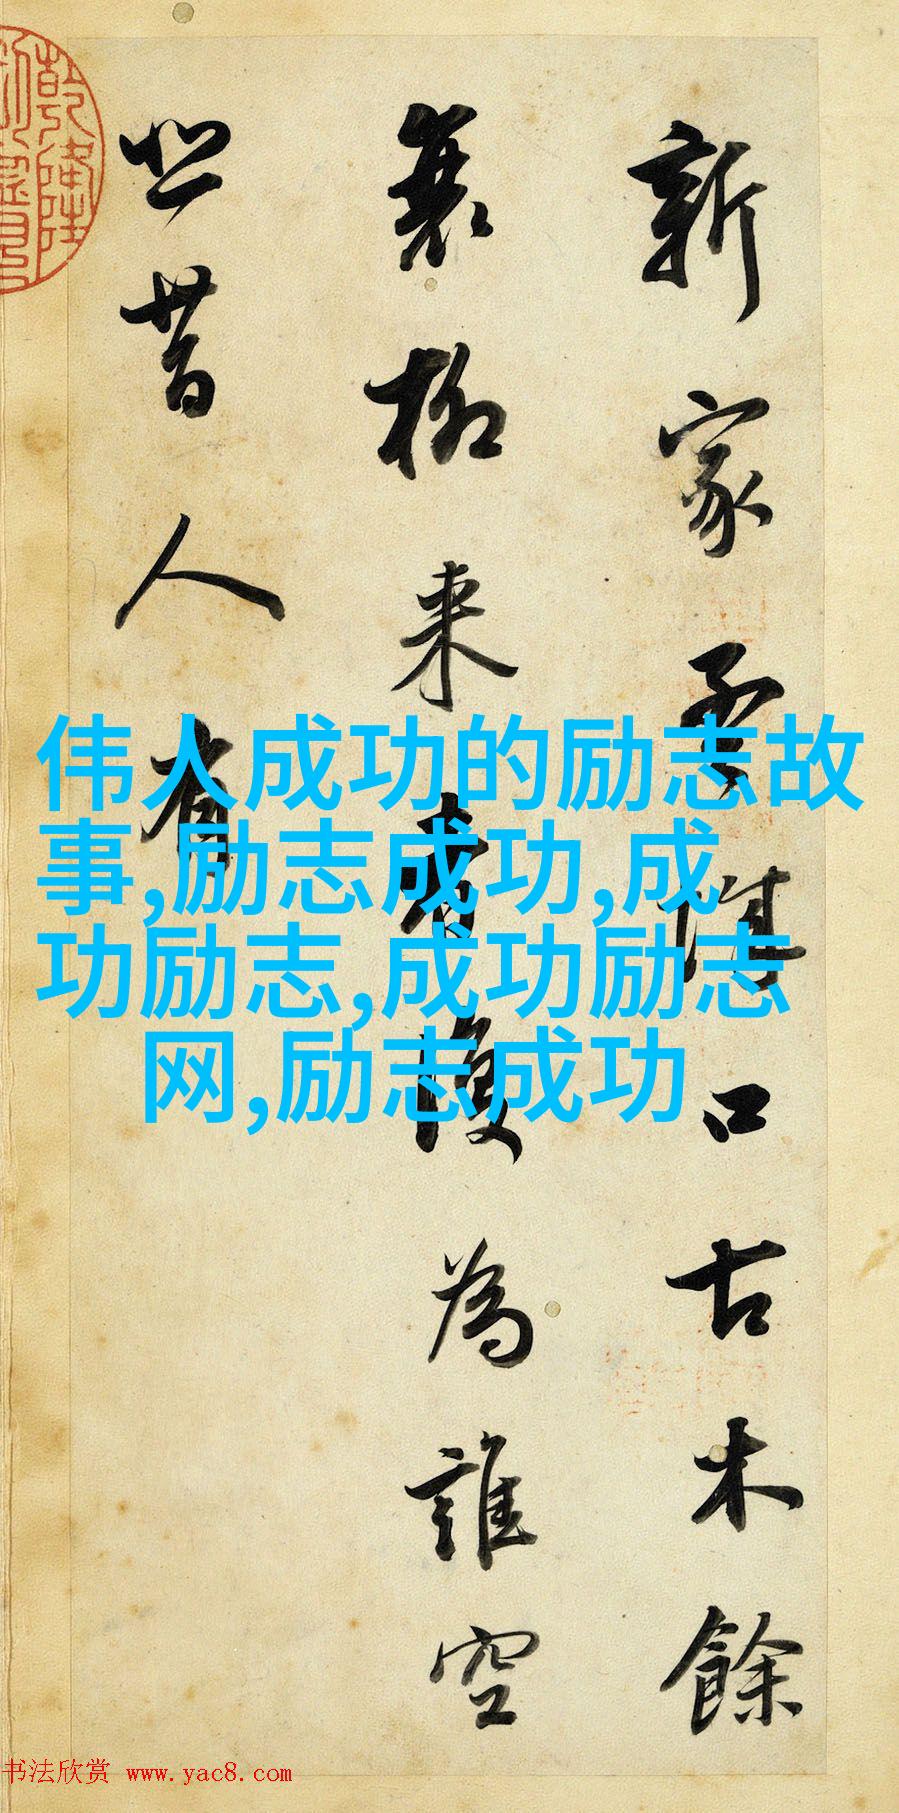 新家孟城口古木餘
衰柳来者復為誰空
悲昔人有
乾隆
伟人成功的励志故
事,励志成功,成
功励志,成功励志
网,励志成功
书法欣赏 www.yac8.com